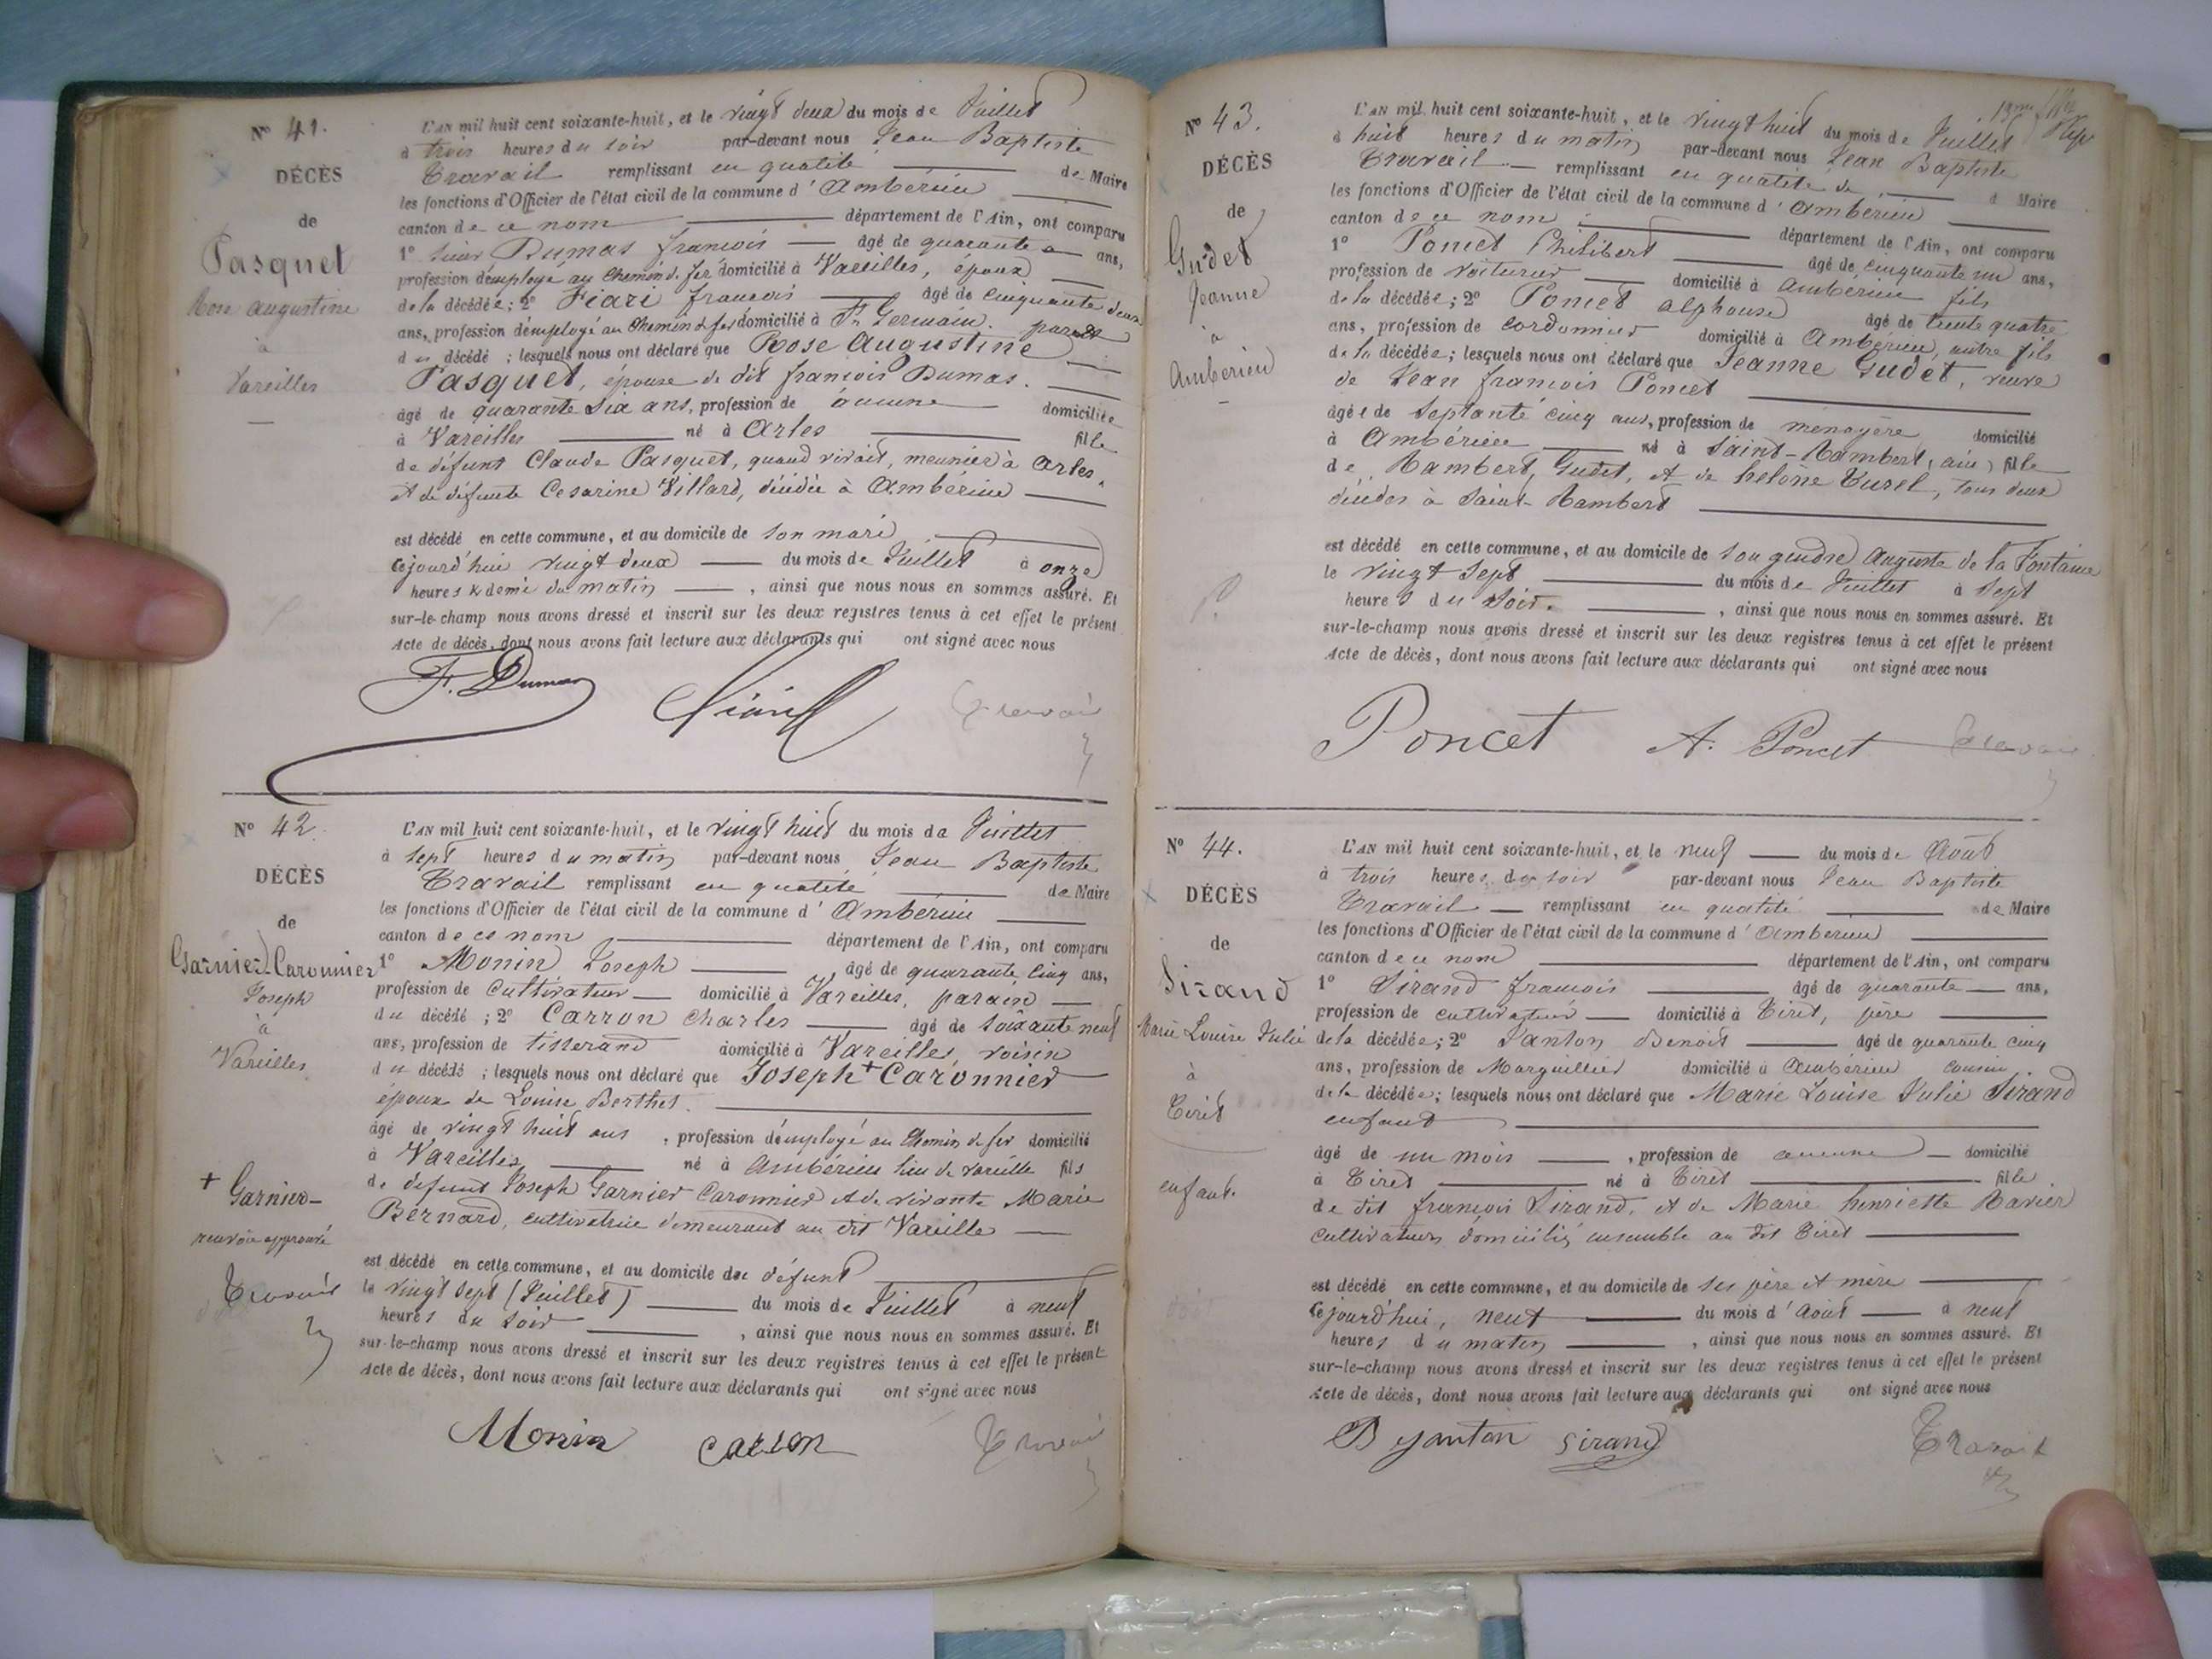 Nº 41.
DÉCÈS
de
Pasquet
Rose augustine
à
Vareilles
L'AN mil huit cent soixante-huit, et le vingt deux du mois de Juillet
à trois heures du soir par-devant nous Jean Baptiste
Travail remplissant en qualité de Maire
les fonctions d'Officier de l'état civil de la commune d'Ambérieu
canton de ce nom département de l'Ain, ont comparu
1º Dumas françois âgé de quarante ans,
profession d'employé au Chemin d. fer domicilié à Vareilles, époux
de la décédée; 2º françois âgé de cinquante deux
ans, profession d'employé au Chemin d. fer domicilié à St Germain. parent
du décédé ; lesquels nous ont déclaré que Rose Augustine
Pasquet, épouse de dit françois Dumas.
âgé de quarante six ans, profession de aucune domiciliée
à Vareilles né à Arles fille
de défunt Claude Pasquet, quand vivait, meunier à Arles,
et de défunte Cesarine Villard, décédée à Ambérieu
est décédé en cette commune, et au domicile de son mari
cejourd'hui vingt deux du mois de Juillet à onze
heures & demi du matin , ainsi que nous nous en sommes assuré. Et
sur-le-champ nous avons dressé et inscrit sur les deux registres tenus à cet effet le présent
Acte de décès, dont nous avons fait lecture aux déclarants qui ont signé avec nous
F. Dumas Travail
Nº 42.
DÉCÈS
de
Garnier-Caronnier
Joseph
à
Vareilles
+ Garnier-
renvoi approuvé
Travail
L'AN mil huit cent soixante-huit, et le vingt huit du mois de Juillet
à sept heures du matin par-devant nous Jean Baptiste
Travail remplissant en qualité de Maire
les fonctions d'Officier de l'état civil de la commune d'Ambérieu
canton de ce nom département de l'Ain, ont comparu
1º Monin Joseph âgé de quarante cinq ans,
profession de cultivateur domicilié à Vareilles, parain
du décédé ; 2º Carron Charles âgé de soixante neuf
ans, profession de tisserand domicilié à Vareilles, voisin
du décédé ; lesquels nous ont déclaré que Joseph + Caronnier
époux de Louise Berthet.
âgé de vingt huit ans , profession d'employé au Chemin de fer domicilié
à Vareilles né à Ambérieu lieu de Vareille fils
de défunt Joseph Garnier Caronnier et de vivante Marie
Bernard, cultivatrice demeurant au dit Vareille
est décédé en cette commune, et au domicile du défunt
le vingt sept (Juillet) du mois de Juillet à neuf
heures du soir , ainsi que nous nous en sommes assuré. Et
sur-le-champ nous avons dressé et inscrit sur les deux registres tenus à cet effet le présent
Acte de décès, dont nous avons fait lecture aux déclarants qui ont signé avec nous
Monin carron Travail
Nº 43.
DÉCÈS
de
Gudet
Jeanne
à
Ambérieu
L'AN mil huit cent soixante-huit, et le vingt huit du mois de Juillet
à huit heures du matin par-devant nous Jean Baptiste
Travail remplissant en qualité de Maire
les fonctions d'Officier de l'état civil de la commune d'Ambérieu
canton de ce nom département de l'Ain, ont comparu
1º Poncet Philibert âgé de cinquante un ans,
profession de voiturier domicilié à Ambérieu fils
de la décédée; 2º Poncet alphonse âgé de trente quatre
ans, profession de cordonnier domicilié à Ambérieu, autre fils
de la décédée; lesquels nous ont déclaré que Jeanne Gudet, veuve
de Jean françois Poncet
âgée de septante cinq ans, profession de menagère domicilié
à Ambérieu né à Saint-Rambert, ain, fille
de Rambert, Gudet, et de helène Turel, tous deux
décédés à Saint-Rambert
est décédé en cette commune, et au domicile de son gendre Auguste de la Fontaine
le vingt sept du mois de Juillet à sept
heures du soir. , ainsi que nous nous en sommes assuré. Et
sur-le-champ nous avons dressé et inscrit sur les deux registres tenus à cet effet le présent
Acte de décès, dont nous avons fait lecture aux déclarants qui ont signé avec nous
Poncet A. Poncet Travail
Nº 44.
DÉCÈS
de
Sirand
Marie Louise Julie
à
Tiret
enfant.
L'AN mil huit cent soixante-huit, et le neuf du mois de Août
à trois heures du soir par-devant nous Jean Baptiste
Travail remplissant en qualité de Maire
les fonctions d'Officier de l'état civil de la commune d'Ambérieu
canton de ce nom département de l'Ain, ont comparu
1º Sirand françois âgé de quarante ans,
profession de cultivateur domicilié à Tiret, père
de la décédée; 2º Janton Benoit âgé de quarante cinq
ans, profession de Marguillier domicilié à Ambérieu cousin
de la décédée; lesquels nous ont déclaré que Marie Louise Julie Sirand
enfant
âgé de un mois , profession de aucune domicilié
à Tiret né à Tiret fille
de dit françois Sirand, et de Marie henriette Ravier
cultivateurs domiciliés ensemble au dit Tiret
est décédé en cette commune, et au domicile de ses père et mère
cejourd'hui, neuf du mois d'Août à neuf
heures du matin , ainsi que nous nous en sommes assuré. Et
sur-le-champ nous avons dressé et inscrit sur les deux registres tenus à cet effet le présent
Acte de décès, dont nous avons fait lecture aux déclarants qui ont signé avec nous
B janton Sirand Travail